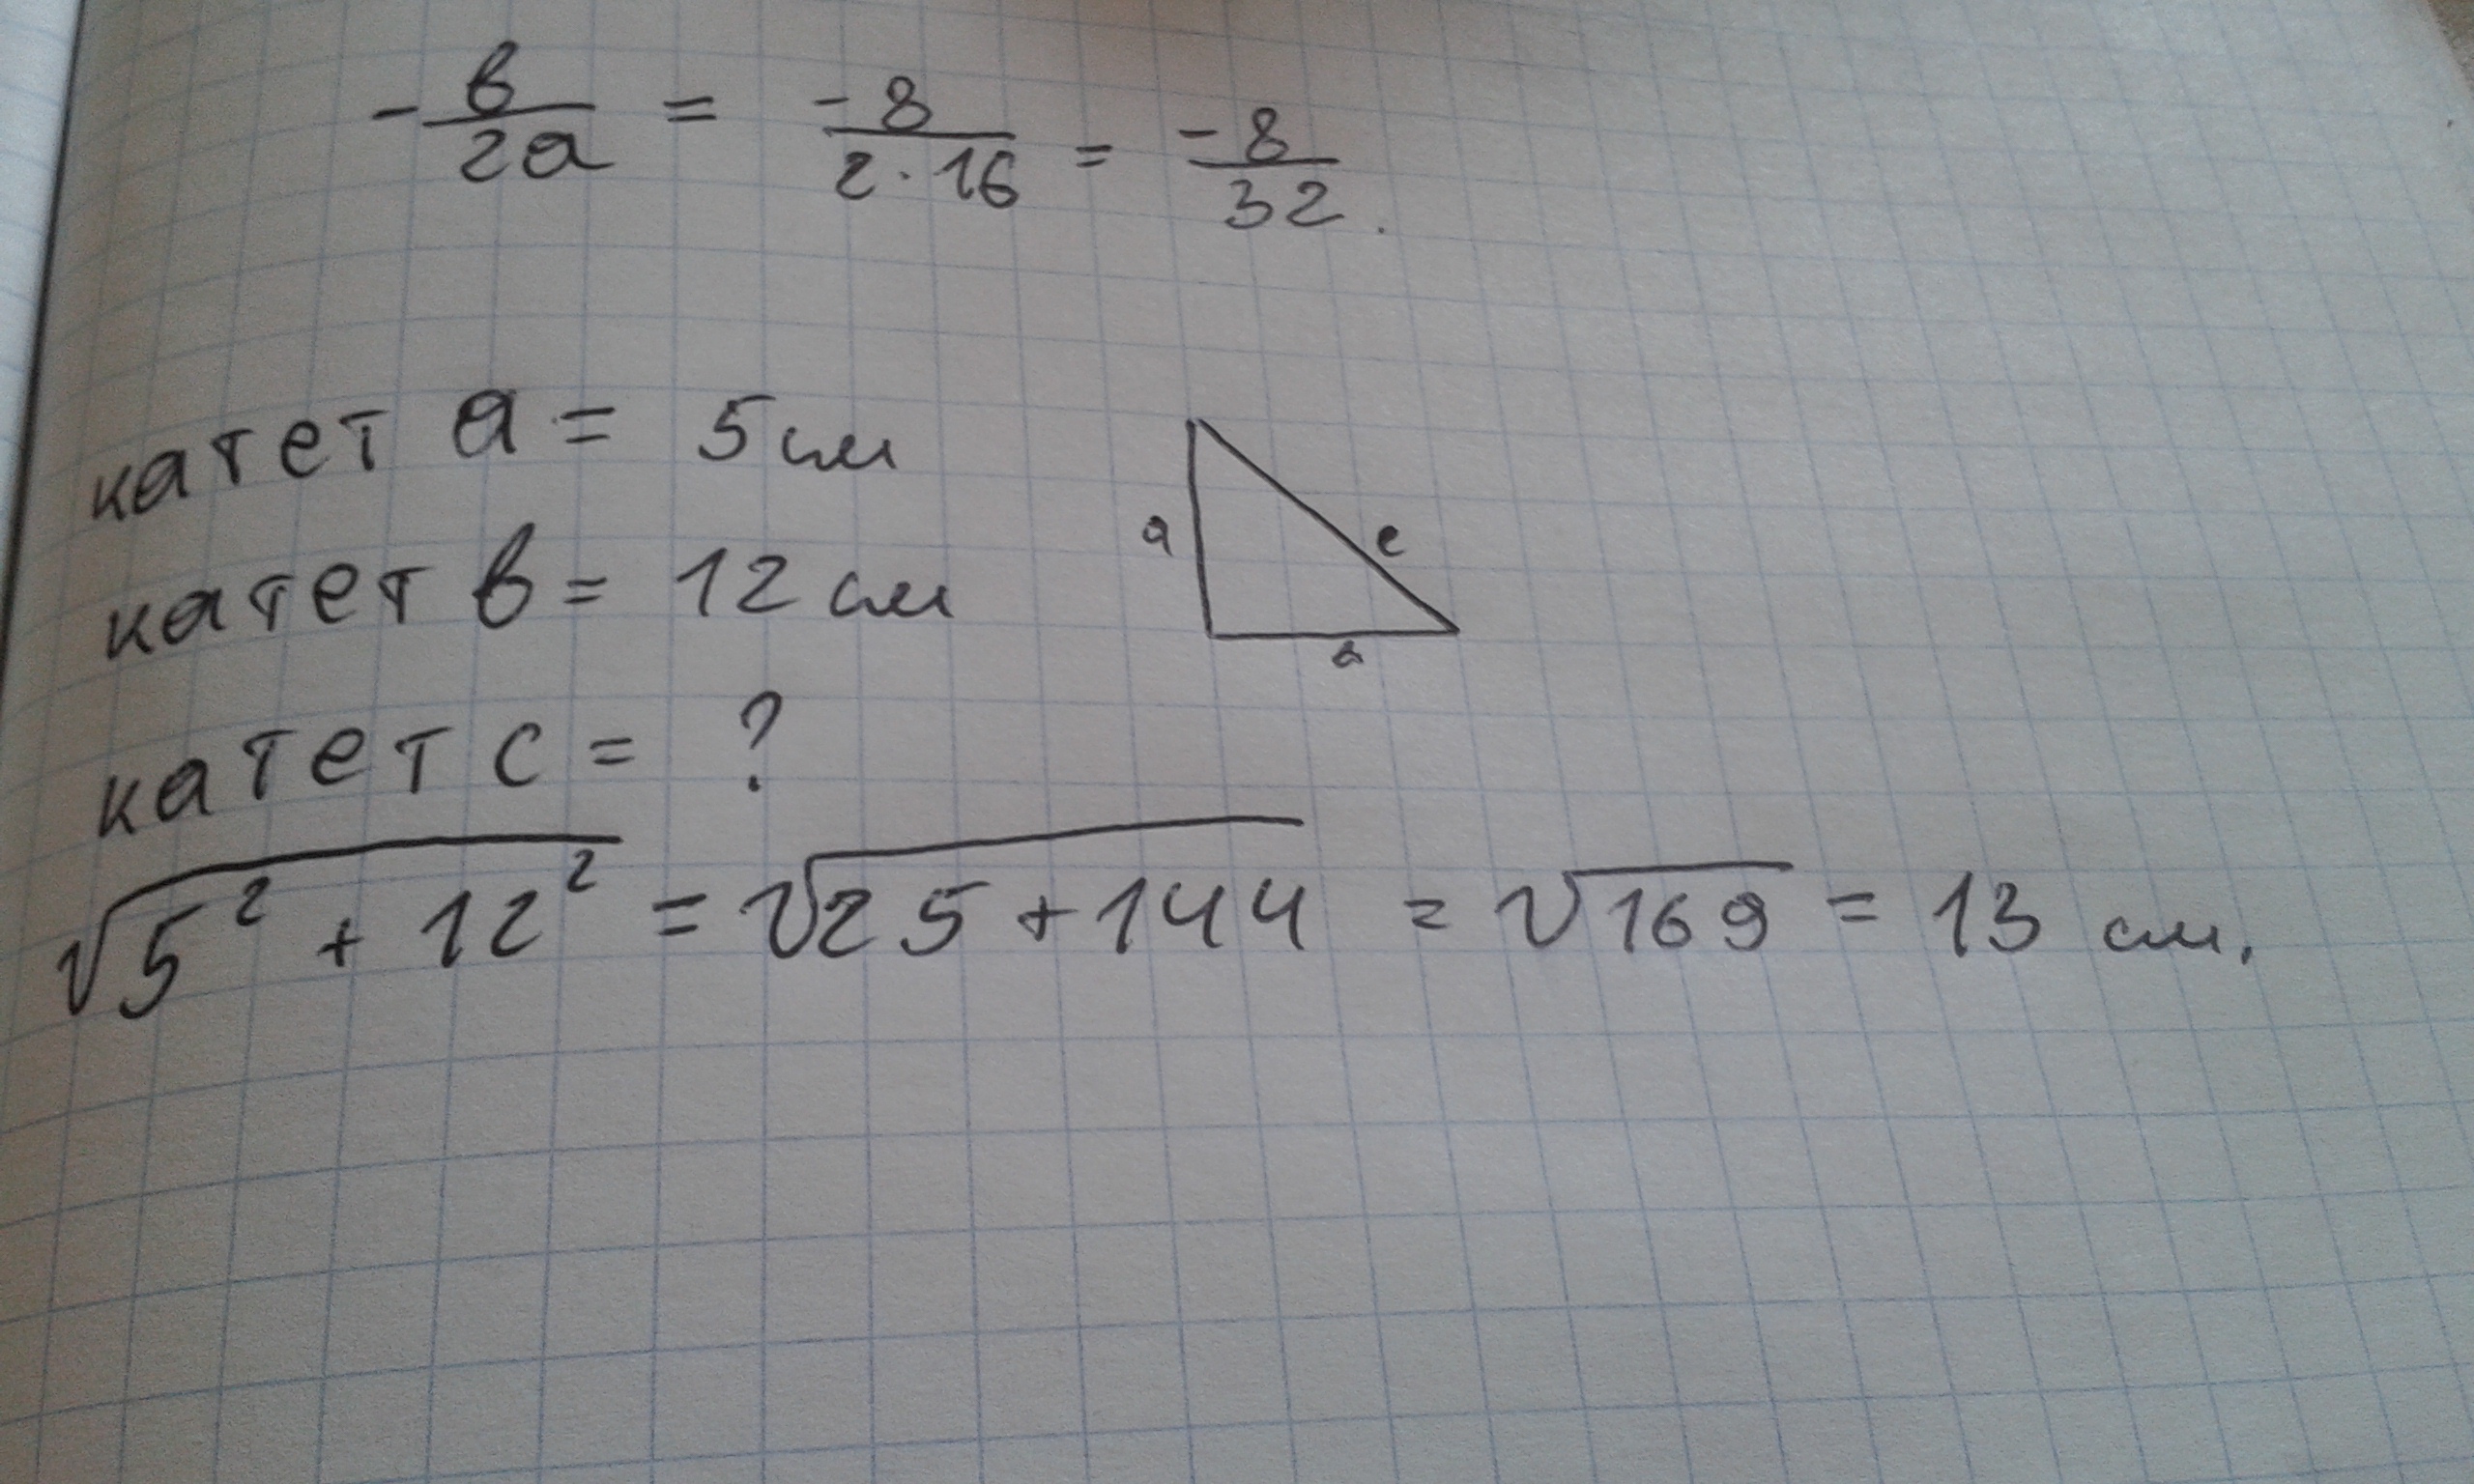 -в/2a = -8/2·16 = -8/32.
катет a = 5 см
катет в = 12 см
a c
в
катет c = ?
√5² + 12² = √25 + 144 = √169 = 13 см.